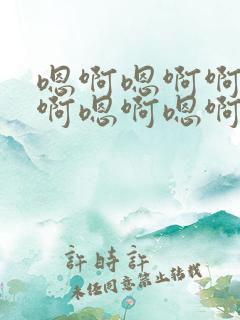 嗯啊嗯啊啊
啊嗯啊嗯啊
許時許
未经同意禁止转载